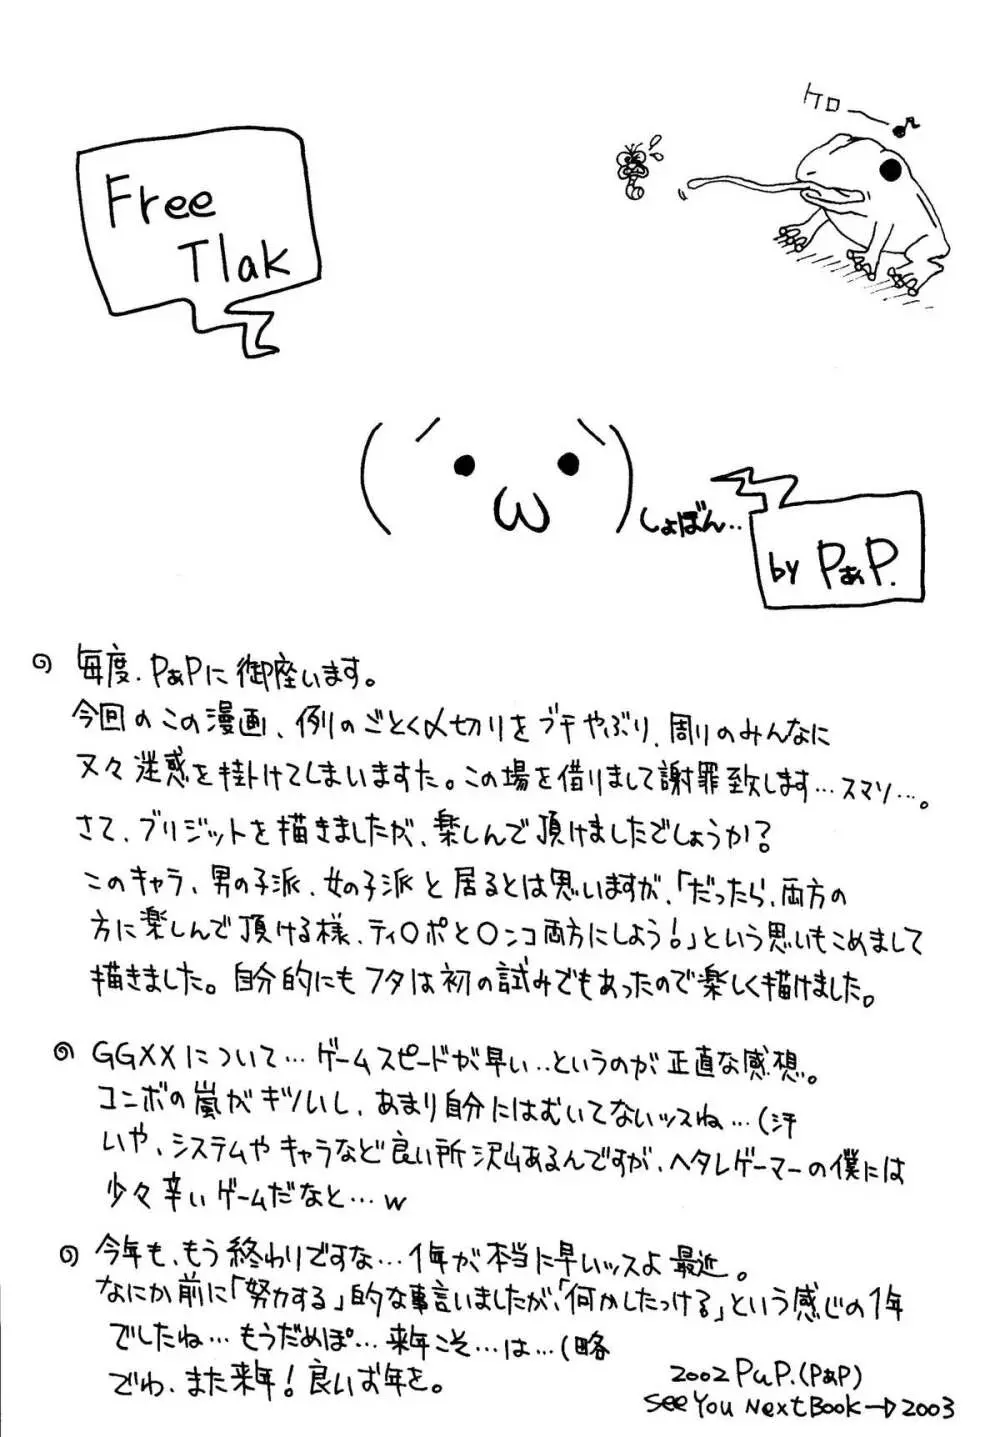 ケロ
Free
Tlak
しょぼん..
by PぁP.
毎度、PぁPに御座います。
今回のこの漫画、例のごとく〆切りをブチやぶり、周りのみんなに
又々迷惑を掛けてしまいますた。この場を借りまして謝罪致します…スマソ…。
さて、ブリジットを描きましたが、楽しんで頂けましたでしょうか?
このキャラ、男の子派、女の子派と居るとは思いますが、「だったら、両方の
方に楽しんで頂ける様、ティ○ポと○ンコ両方にしよう!」という思いもこめまして
描きました。自分的にもフタは初の試みでもあったので楽しく描けました。
GGXXについて…ゲームスピードが早い..というのが正直な感想。
コンボの嵐がキツいし、あまり自分にはむいてないッスね…(汗
いや、システムやキャラなど良い所沢山あるんですが、ヘタレゲーマーの僕には
少々辛いゲームだなと…w
今年も、もう終わりですな…1年が本当に早いッスよ最近。
なにか前に「努力する」的な事言いましたが、「何かしたっける」という感じの1年
でしたね…もうだめぽ…来年こそ…は…(略
でわ、また来年!良いお年を。
2002 PuP.(PぁP)
See You Next Book→2003